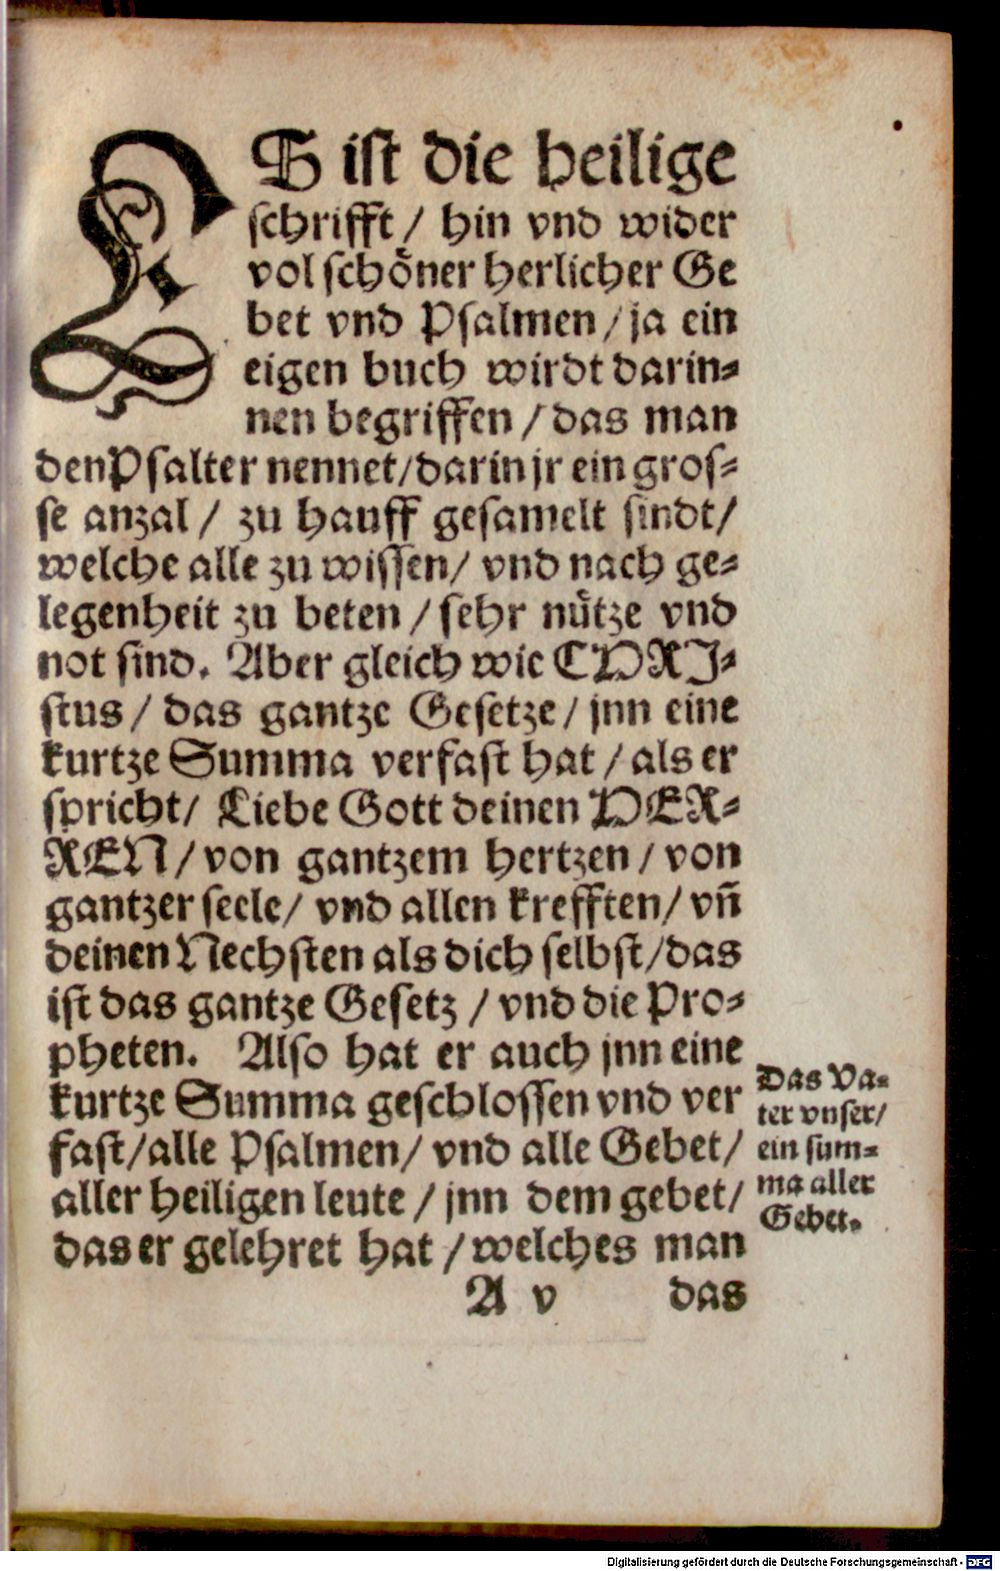 ES ist die heilige
schrifft / hin vnd wider
vol schöner herlicher Ge
bet vnd Psalmen / ja ein
eigen buch wirdt darin-
nen begriffen / das man
den Psalter nennet / darin jr ein gros-
se anzal / zu hauff gesamelt sindt /
welche alle zu wissen / vnd nach ge-
legenheit zu beten / sehr nütze vnd
not sind. Aber gleich wie CHRI-
stus / das gantze Gesetze / jnn eine
kurtze Summa verfast hat / als er
spricht / Liebe Gott deinen HER-
REN / von gantzem hertzen / von
gantzer seele / vnd allen krefften / vñ
deinen Nechsten als dich selbst / das
ist das gantze Gesetz / vnd die Pro-
pheten. Also hat er auch jnn eine
kurtze Summa geschlossen vnd ver
fast / alle Psalmen / vnd alle Gebet /
aller heiligen leute / jnn dem gebet /
das er gelehret hat / welches man
A v das
Das Va-
ter vnser /
ein sum-
ma aller
Gebet.
Digitalisierung gefördert durch die Deutsche Forschungsgemeinschaft - DFG